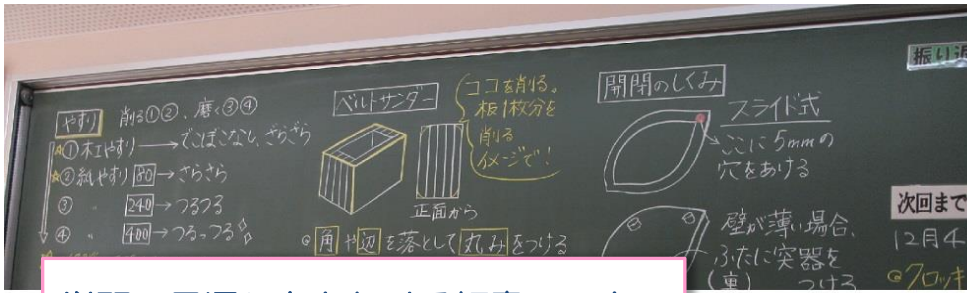 やすり 削る①②、磨く③④
☆①木工やすり→でこぼこなし、ざらざら
☆②紙やすり 80→さらさら
③ 〃 240→つるつる
④ 〃 400→つるっつる
ベルトサンダー
ココを削る。
板1枚分を
削る
イメージで！
正面から
◎角や辺を落として丸みをつける
開閉のしくみ
スライド式
ここに5mmの
穴をあける
壁が薄い場合、
ふたに突器を
(裏) つける
振り返
次回まで
12月4
◎クロッキ